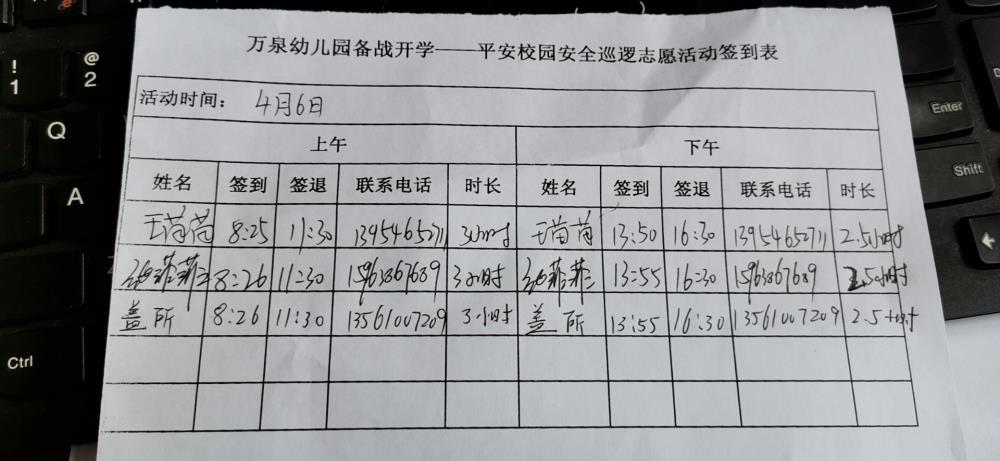 万泉幼儿园备战开学——平安校园安全巡逻志愿活动签到表
活动时间: 4月6日
上午 下午
姓名 签到 签退 联系电话 时长 姓名 签到 签退 联系电话 时长
王苘苘 8:25 11:30 13954652711 3小时 王苘苘 13:50 16:30 13954652711 2.5小时
菲菲 8:26 11:30 15963867689 3小时 菲菲 13:55 16:30 15963867689 2.5小时
盖所 8:26 11:30 13561007209 3小时 盖所 13:55 16:30 13561007209 2.5小时
! 1
@ 2
Q
A
Ctrl
Enter
Shift